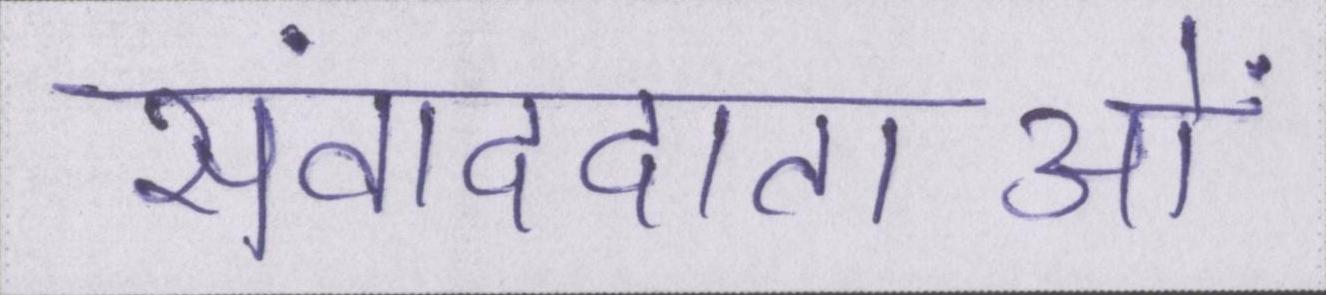 संवाददाताओं